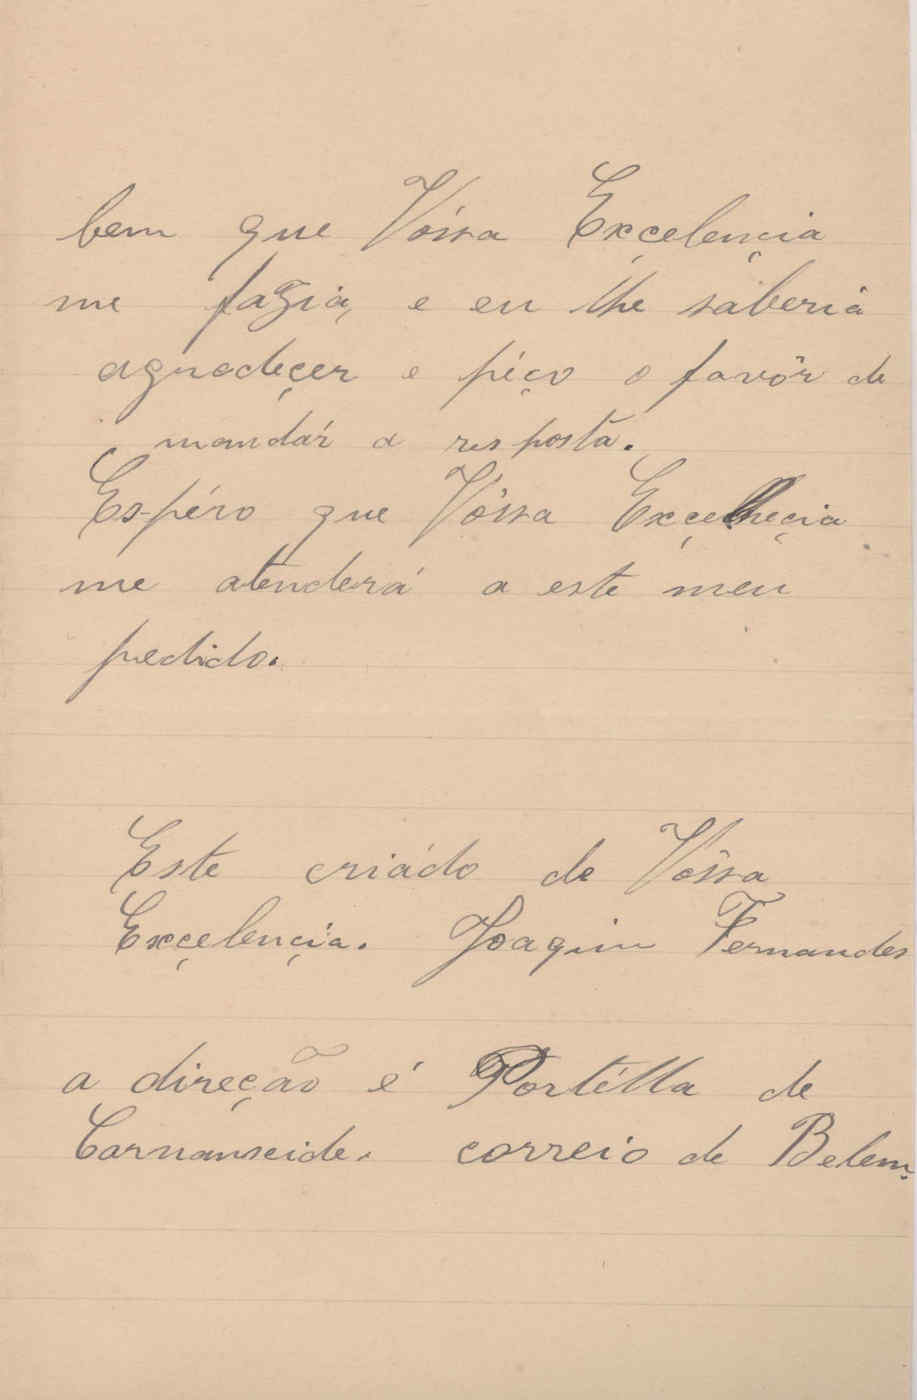 bem que Vóssa Exçelençia
me fazia, e eu lhe saberia
agradeçer e péço o favôr de
mandár a resposta.
Espéro que Vôssa Exçelheçia
me atenderá a este meu
pedido.
Este criádo de Vôssa
Exçelençia. Joaquim Fernandes
a direção é Portélla de
Carnanseide. correio de Belem.